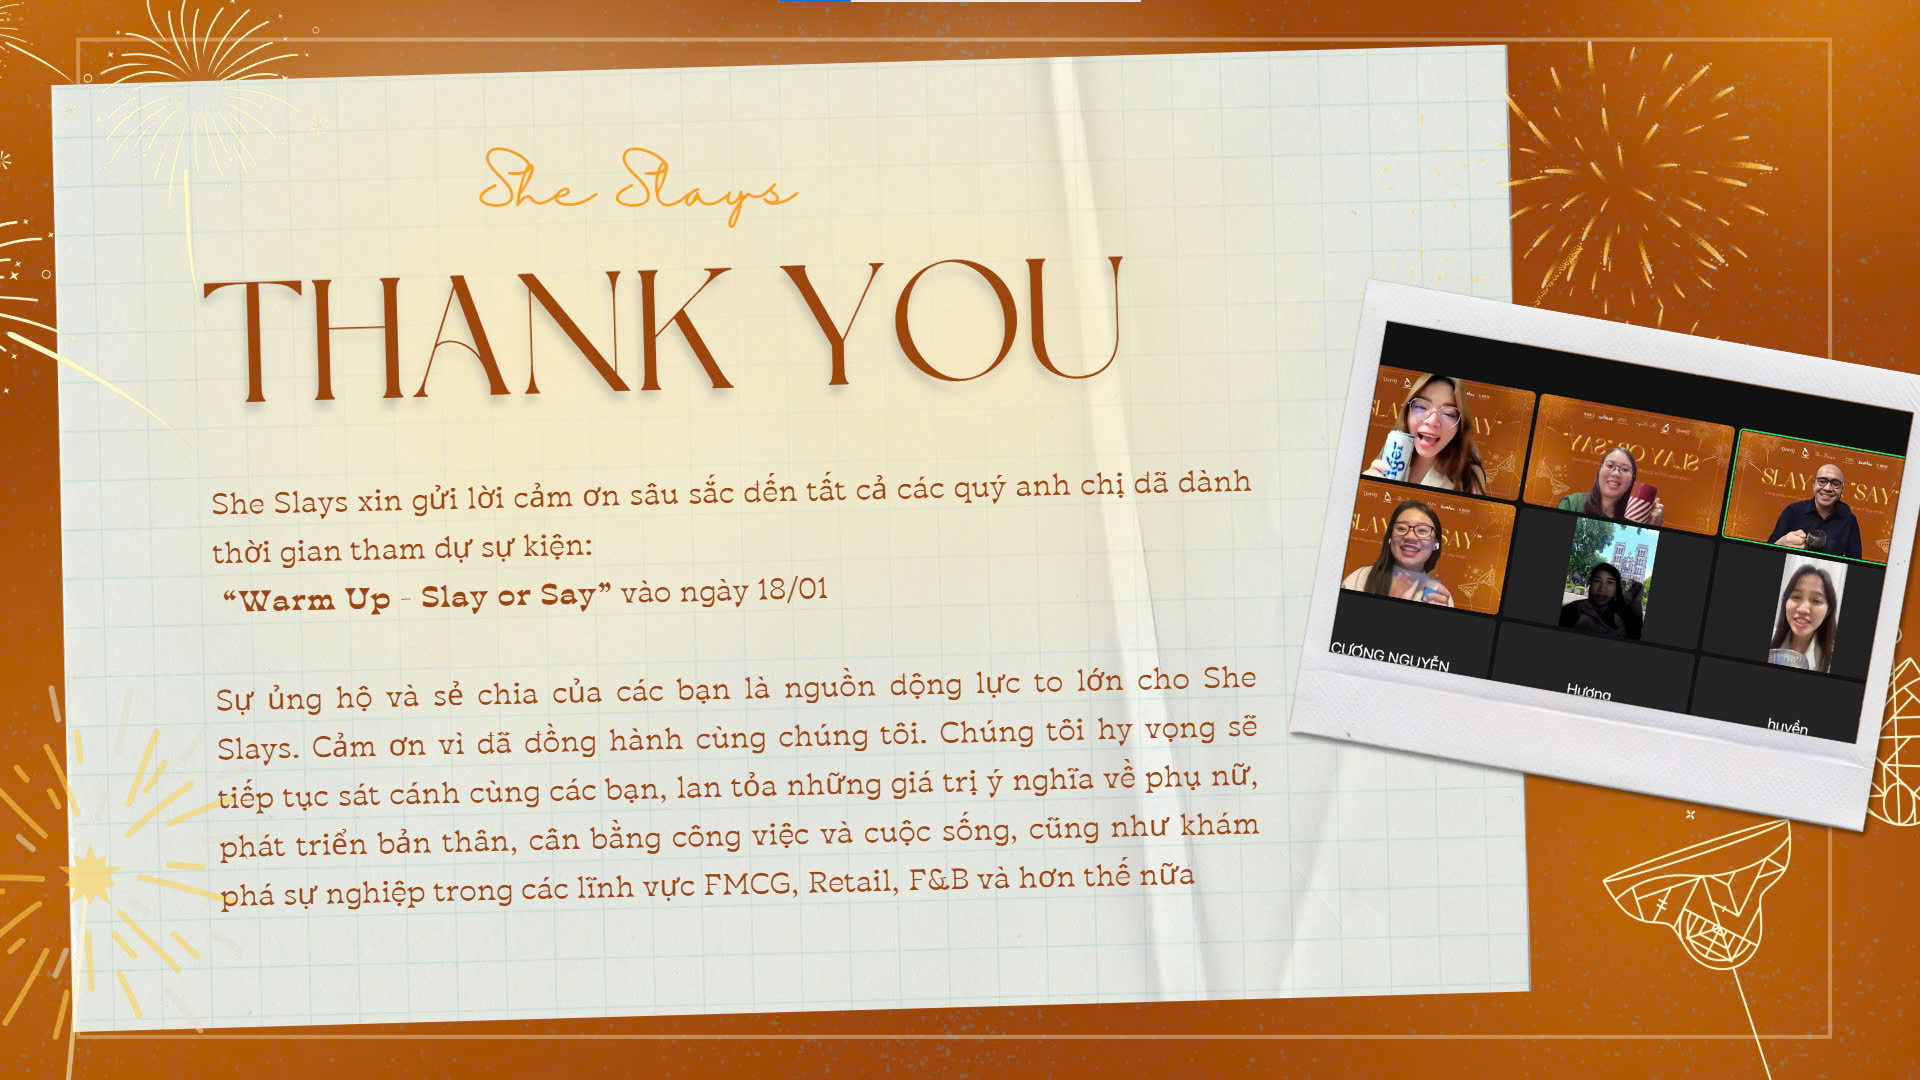 She Slays
THANK YOU
She Slays xin gửi lời cảm ơn sâu sắc đến tất cả các quý anh chị đã dành
thời gian tham dự sự kiện:
“Warm Up - Slay or Say” vào ngày 18/01
Sự ủng hộ và sẻ chia của các bạn là nguồn động lực to lớn cho She
Slays. Cảm ơn vì đã đồng hành cùng chúng tôi. Chúng tôi hy vọng sẽ
tiếp tục sát cánh cùng các bạn, lan tỏa những giá trị ý nghĩa về phụ nữ,
phát triển bản thân, cân bằng công việc và cuộc sống, cũng như khám
phá sự nghiệp trong các lĩnh vực FMCG, Retail, F&B và hơn thế nữa
SLAY OR "SAY"
SLAY "SAY"
SLAY SAY"
CƯỜNG NGUYỄN
Hương
huyền